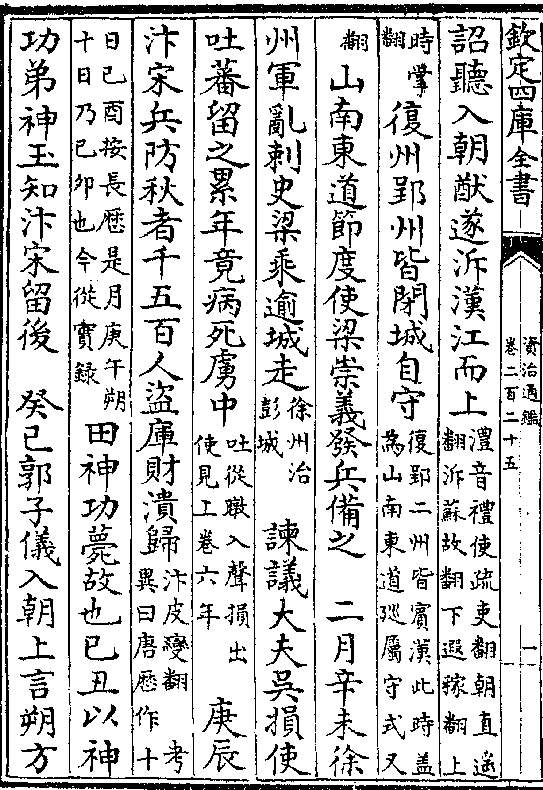 欽定四庫全書
資治通鑑
卷二百二十五
一
詔聽入朝猷遂泝漢江而上
澧音禮使疏吏翻朝直遙
翻泝蘇故翻下遐稼翻上
時掌
翻
復州郢州皆閉城自守
復郢二州皆賓漢此時盖
為山南東道廵屬守式又
翻
山南東道節度使梁崇義發兵備之 二月辛未徐
州軍亂刺史梁乘逾城走
徐州治
彭城
諫議大夫吳損使
吐蕃留之累年竟病死虜中
吐從暾入聲損出
使見上卷六年
庚辰
汴宋兵防秋者千五百人盜庫財潰歸
汴皮變翻 考
異曰唐厯作十
日已酉按長厯是月庚午朔
十日乃已卯也今從實録
田神功薨故也已丑以神
功弟神玉知汴宋留後 癸已郭子儀入朝上言朔方